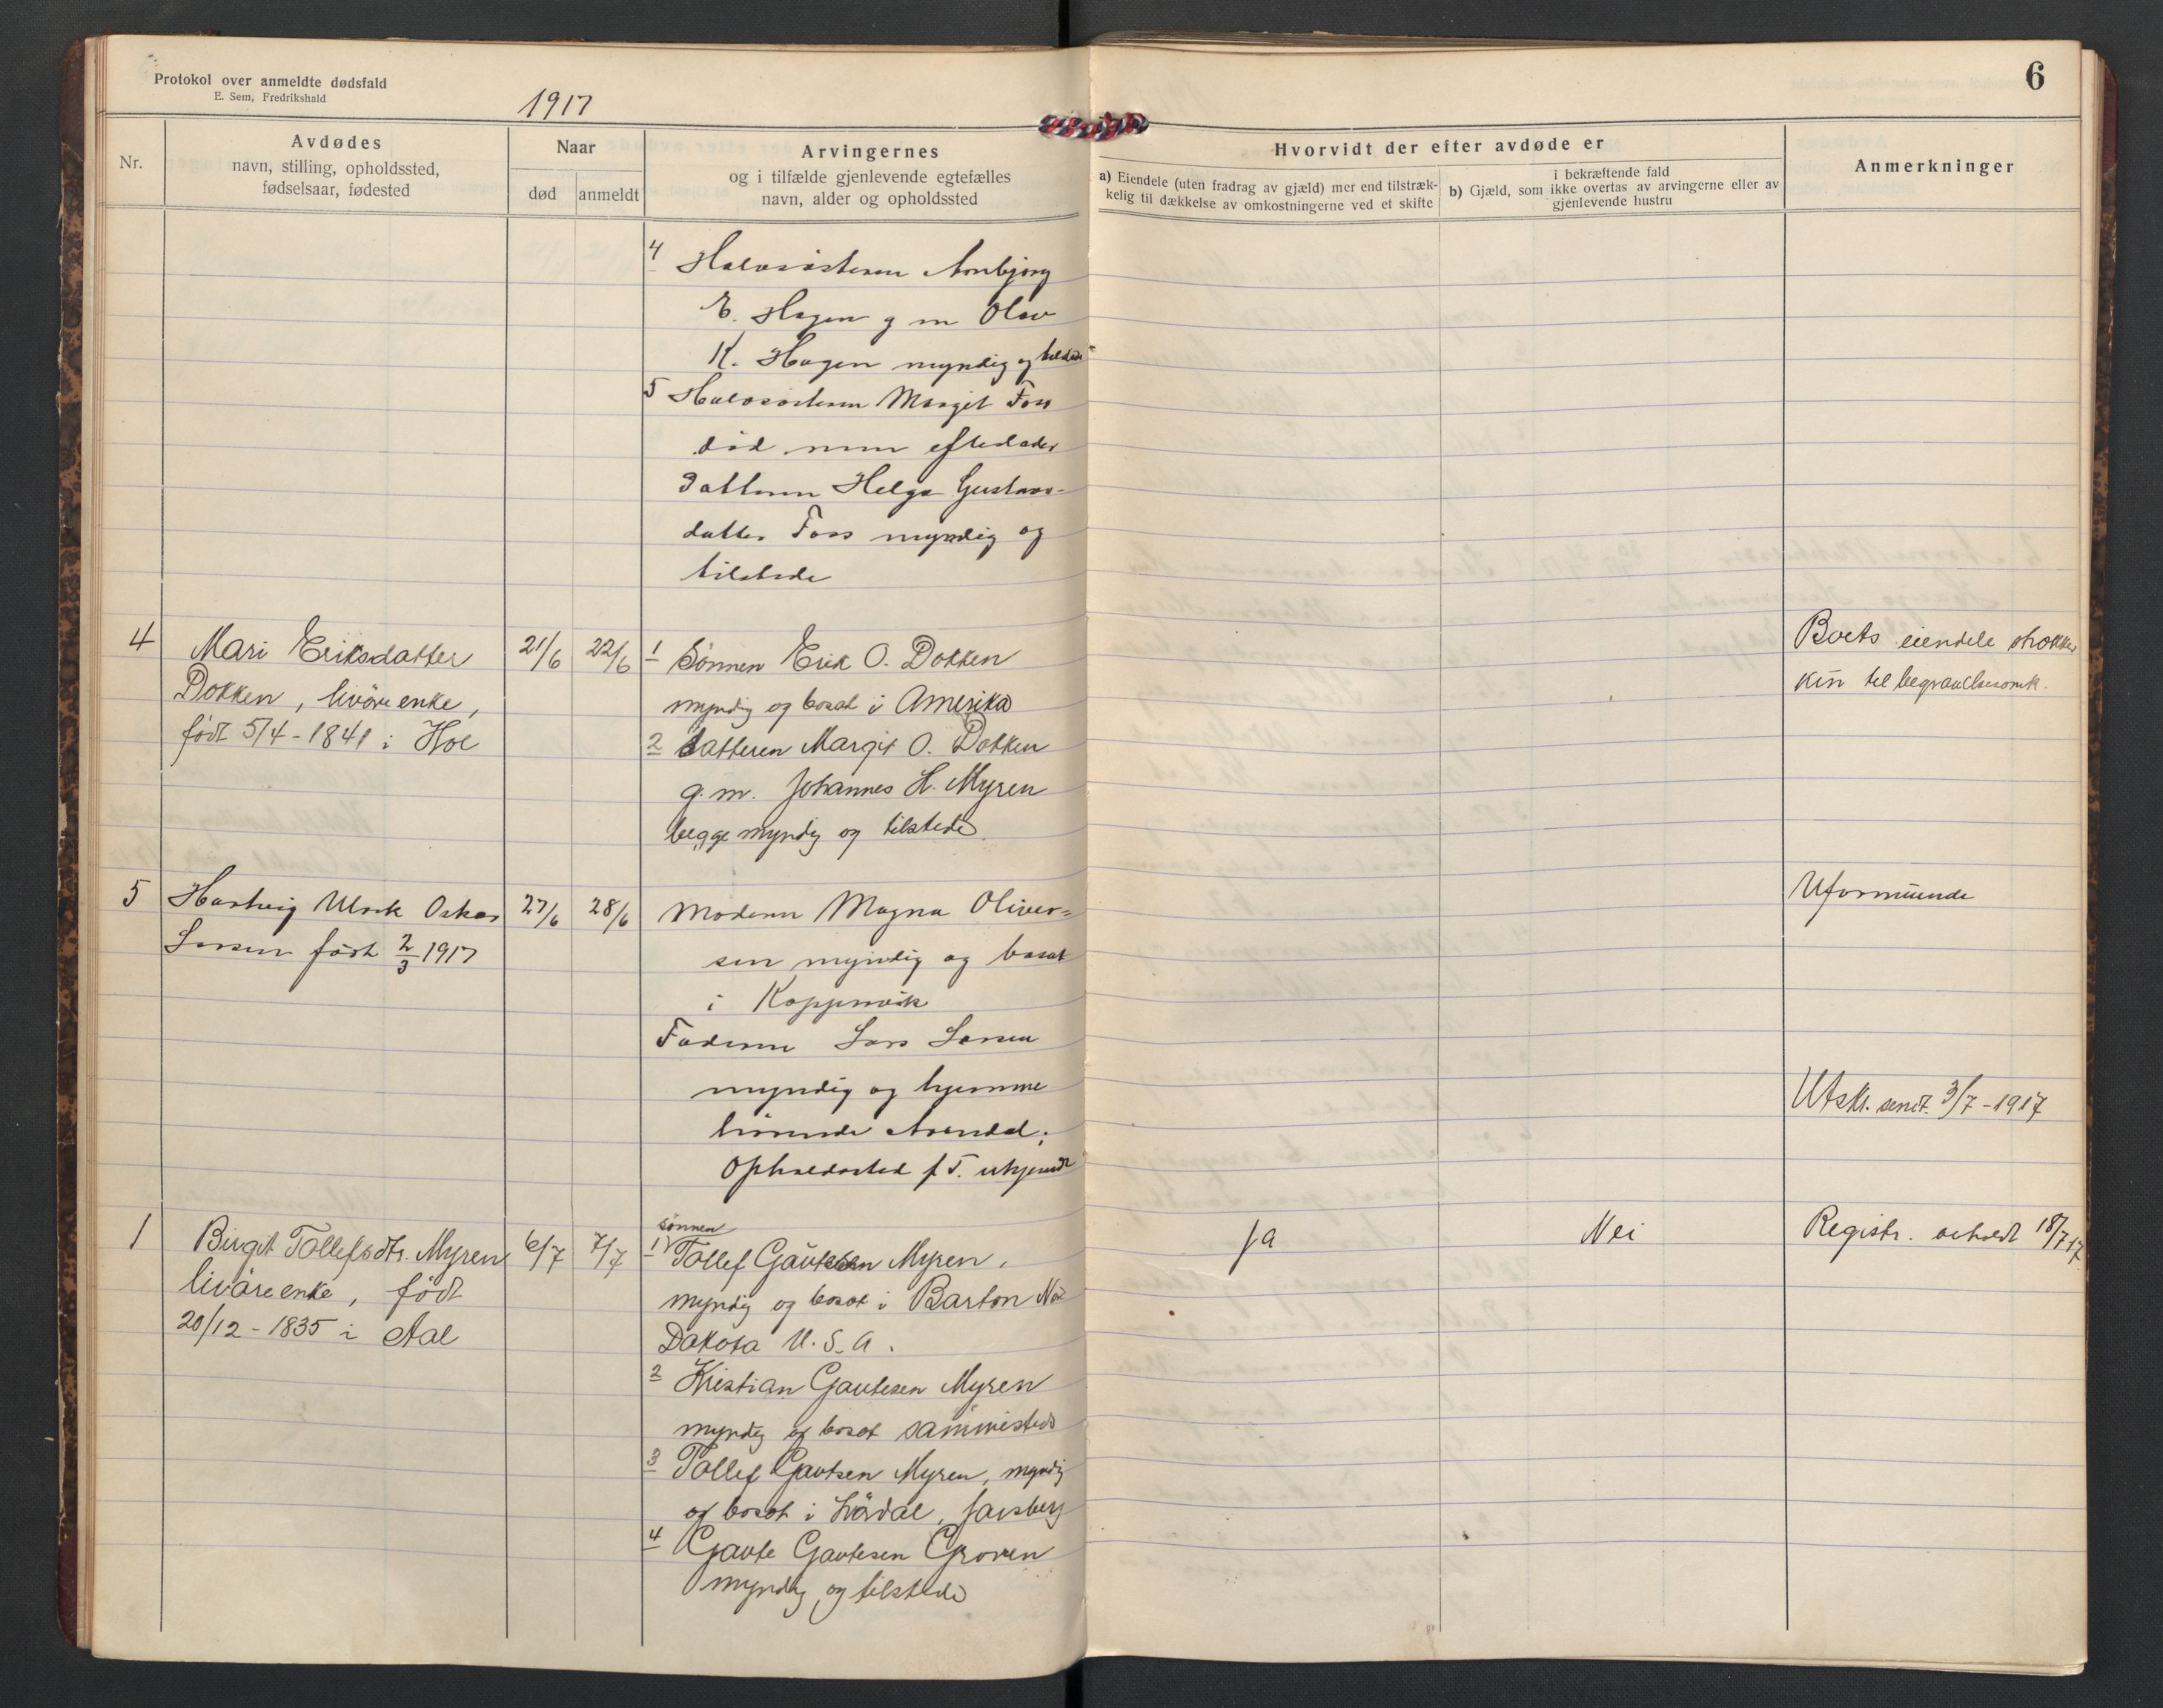 Protokol over anmeldte dødsfald
E. Sem, Fredrikshald
1917
6
Nr.
Avdødes
navn, stilling, opholdssted,
fødselsaar, fødested
Naar
død
anmeldt
Arvingernes
og i tilfælde gjenlevende egtefælles
navn, alder og opholdssted
Hvorvidt der efter avdøde er
a) Eiendele (uten fradrag av gjæld) mer end tilstræk-
kelig til dækkelse av omkostningerne ved et skifte
i bekræftende fald
b) Gjæld, som ikke overtas av arvingerne eller av
gjenlevende hustru
Anmerkninger
4 Halvsøsteren Arnbjørg
E. Hagen g m Olav
K. Hagen myndig og tilstede
5 Halvsøsteren Margit Foss
død men efterlader
Datteren Helga Gustavs-
datter Foss myndig og
tilstede
4
Mari Eriksdatter
Dokken, livøreenke,
født 5/4-1841 i Hol
21/6
22/6
1 Sönnen Erik O. Dokken
myndig og bosat i Amerika
2 Datteren Margit O. Dokken
g.m. Johannes H. Myren
begge myndig og tilstede
Boets eiendele strækker
kun til begravelsesomk.
5
Hartvig Ulrik Oskar
Larsen født 2/3 1917
27/6
28/6
Moderen Magna Oliver-
sen myndig og bosat
i Koppervik
Faderen Lars Larsen
myndig og hjemme
hörende Arendal;
Opholdssted p.T. ukjendt
Uformuende
Utskr. sendt. 3/7-1917
1
Birgit Tollefsdtr. Myren
livöreenke, født
20/12-1835 i Aal
6/7
7/7
sönnen
1 Tollef Gautesen Myren,
myndig og bosat i Barton Nor
Dakota U.S.A.
2 Kristian Gautesen Myren
myndig og bosat sammesteds
3 Tollef Gautsen Myren, myndig
og bosat i Lardal, Jarsberg
4 Gaute Gautesen Groven
myndig og tilstede
Ja
Nei
Registr. avholdt 18/7 17